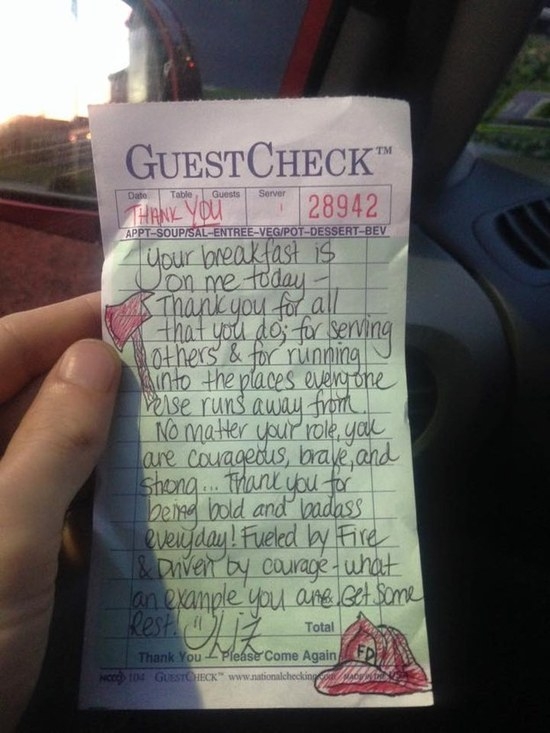 GUESTCHECK™
Date Table Guests Server
THANK YOU ! 28942
APPT-SOUP/SAL-ENTREE-VEG/POT-DESSERT-BEV
your breakfast is
on me today -
Thank you for all
that you do; for serving
others & for running
into the places everyone
else runs away from.
No matter your role, you
are courageous, brave, and
strong... Thank you for
being bold and badass
everyday! Fueled by Fire
& Driven by courage - what
an example you are. Get some
Rest. Liz
Total
FD
Thank You – Please Come Again
104 GUESTCHECK™ www.nationalchecking.com MADE IN